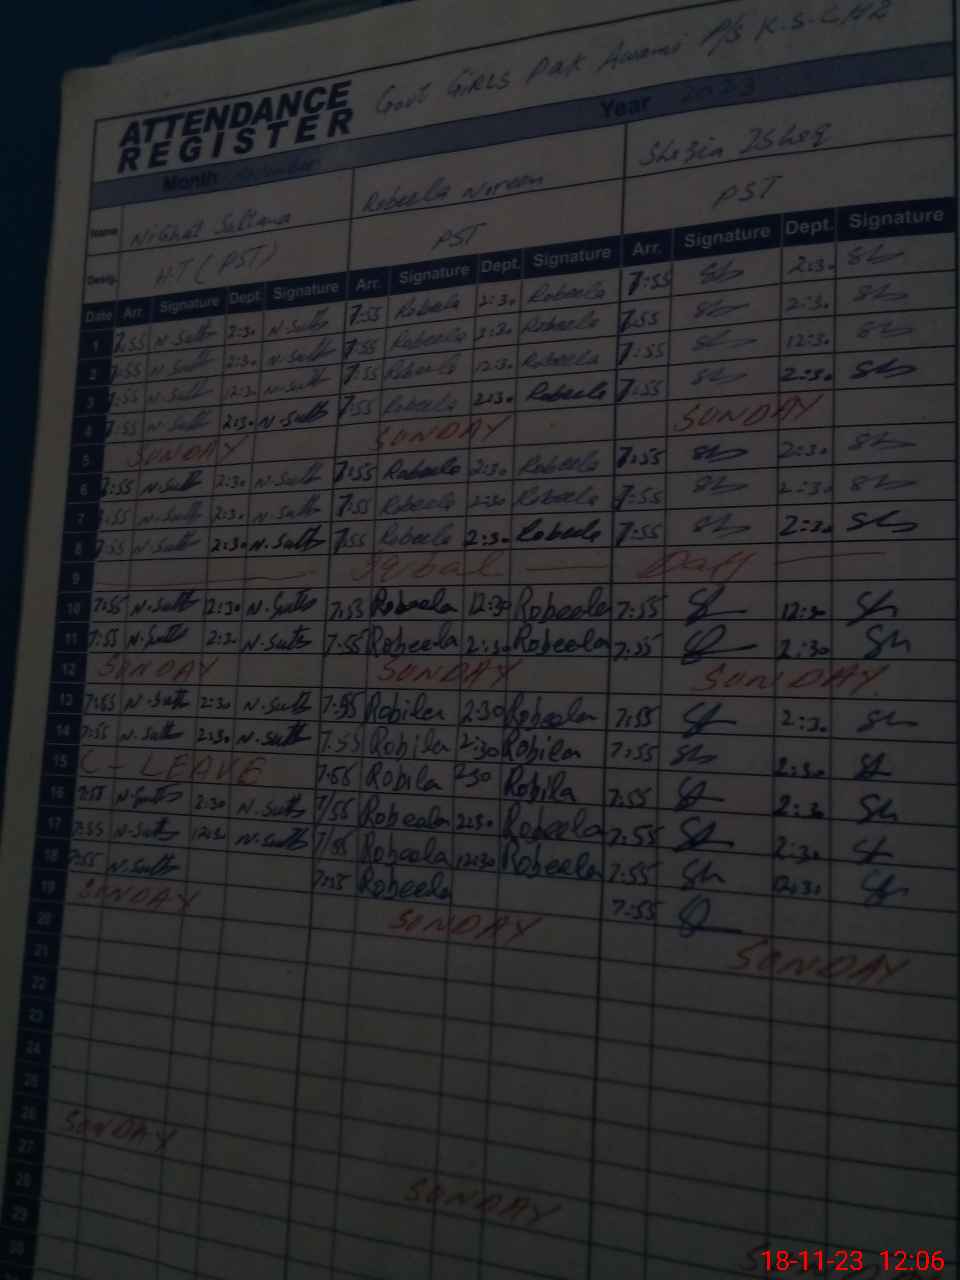 ATTENDANCE REGISTER Govt GIRLS Pak Awami P/S K.S.C
Month November Year 2023
Name Nighat Sultana Robeela Noreen Shazia Ishaq
Desig. H.T (PST) PST PST
Date Arr. Signature Dept. Signature Arr. Signature Dept. Signature Arr. Signature Dept. Signature
1 7:55 N-Sult 2:30 N-Sult 7:55 Robeela 2:30 Robeela 7:55 Sh 2:30 Sh
2 7:55 N-Sult 2:30 N-Sult 7:55 Robeela 2:30 Robeela 7:55 Sh 2:30 Sh
3 7:55 N-Sult 12:30 N-Sult 7:55 Robeela 12:30 Robeela 7:55 Sh 12:30 Sh
4 7:55 N-Sult 2:30 N-Sult 7:55 Robeela 2:30 Robeela 7:55 Sh 2:30 Sh
5 SUNDAY SUNDAY SUNDAY
6 7:55 N-Sult 2:30 N-Sult 7:55 Robeela 2:30 Robeela 7:55 Sh 2:30 Sh
7 7:55 N-Sult 2:30 N-Sult 7:55 Robeela 2:30 Robeela 7:55 Sh 2:30 Sh
8 7:55 N-Sult 2:30 N-Sult 7:55 Robeela 2:30 Robeela 7:55 Sh 2:30 Sh
9 Iqbal Day
10 7:55 N-Sult 12:30 N-Sult 7:55 Robeela 12:30 Robeela 7:55 Sh 12:30 Sh
11 7:55 N-Sult 2:30 N-Sult 7:55 Robeela 2:30 Robeela 7:55 Sh 2:30 Sh
12 SUNDAY SUNDAY SUNDAY
13 7:55 N-Sult 2:30 N-Sult 7:55 Robila 2:30 Robeela 7:55 Sh 2:30 Sh
14 7:55 N-Sult 2:30 N-Sult 7:55 Robila 2:30 Robila 7:55 Sh 2:30 Sh
15 C-LEAVE 7:55 Robila 2:30 Robila 7:55 Sh 2:30 Sh
16 7:55 N-Sult 2:30 N-Sult 7:55 Robeela 2:30 Robeela 7:55 Sh 2:30 Sh
17 7:55 N-Sult 12:30 N-Sult 7:55 Robeela 12:30 Robeela 7:55 Sh 12:30 Sh
18 7:55 N-Sult 7:55 Robeela 7:55 Sh
19 SUNDAY SUNDAY SUNDAY
20
21
22
23
24
25
26 SUNDAY SUNDAY
27
28
29
30
18-11-23 12:06